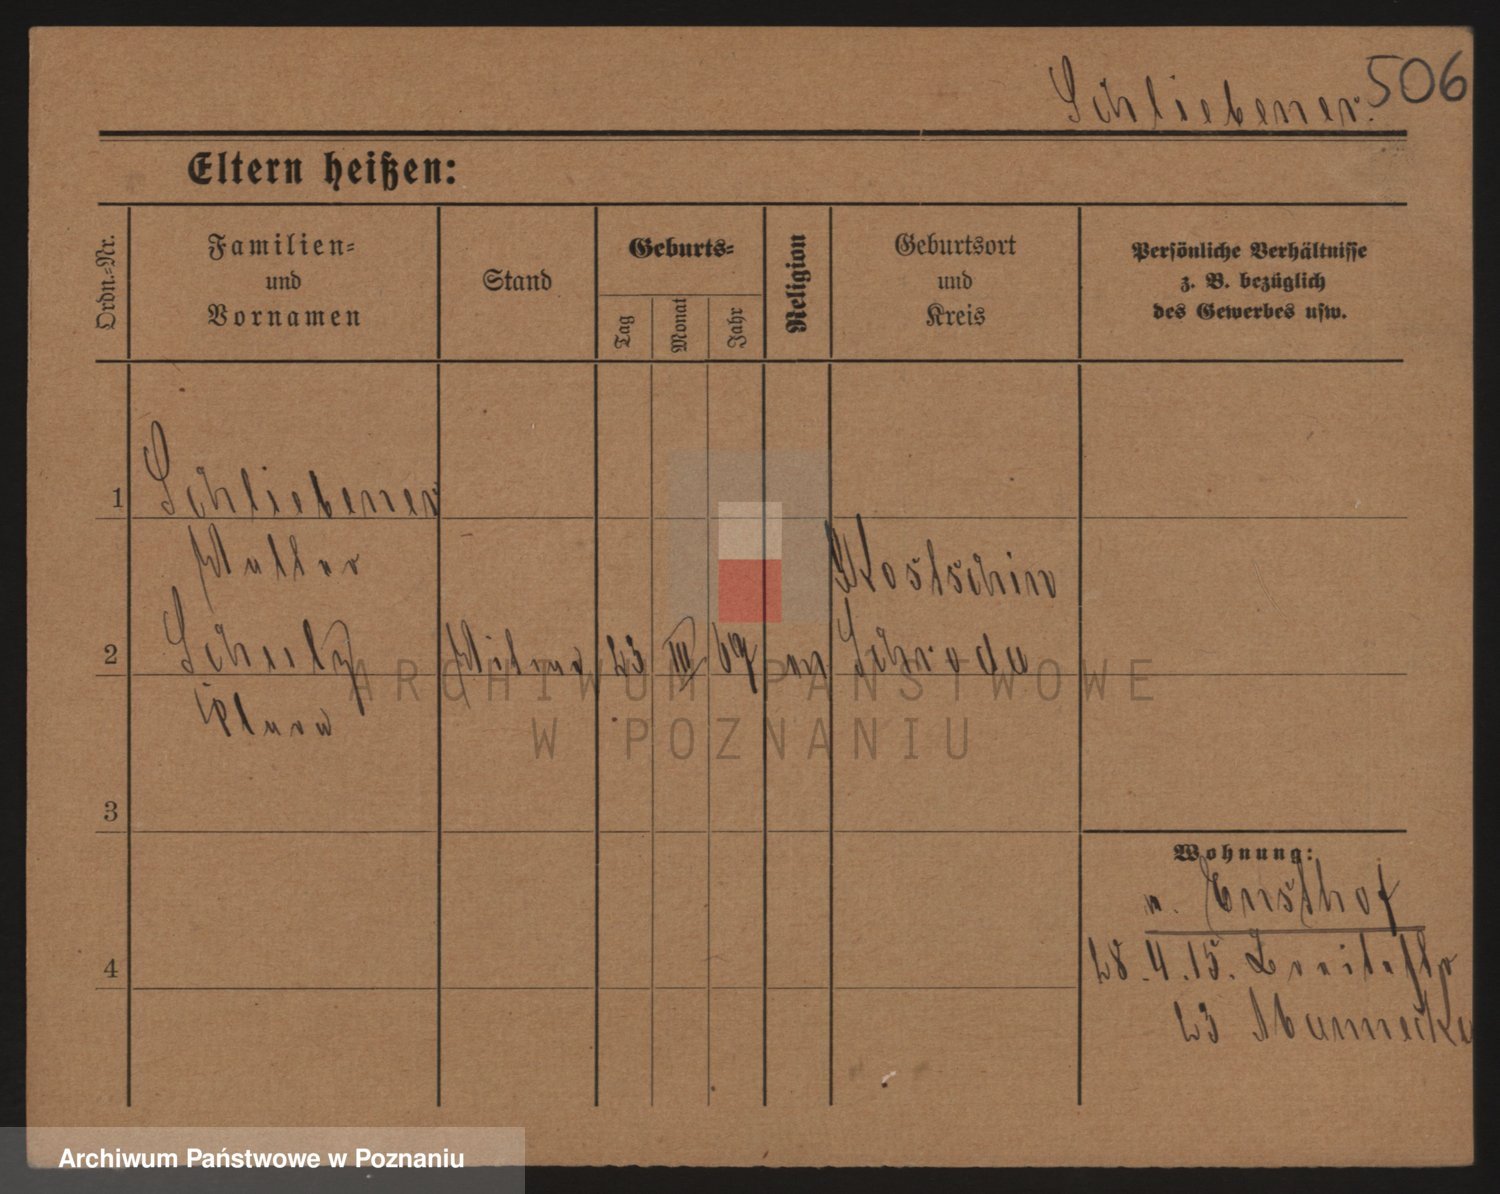 Schliebener.
506
Eltern heißen:
Ordn.-Nr.
Familien-
und
Vornamen
Stand
Geburts-
Tag
Monat
Jahr
Religion
Geburtsort
und
Kreis
Persönliche Verhältnisse
z. B. bezüglich
des Gewerbes usw.
1
Schliebener
Walter
2
Schulz
Clara
Witwe
23
III
67
ev
Kostschin
Schroda
3
4
Wohnung:
28.4.15. Breitestr
23 Mannecke
ARCHIWUM PAŃSTWOWE
W POZNANIU
Archiwum Państwowe w Poznaniu